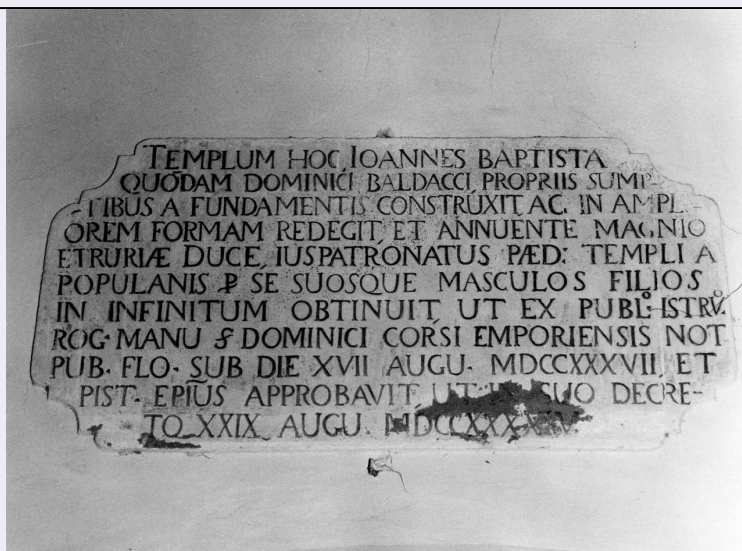 TEMPLUM HOC IOANNES BAPTISTA
QUŌDAM DOMINICI BALDACCI PROPRIIS SUMP-
-TIBUS A FUNDAMENTIS CONSTRUXIT AC IN AMPL-
OREM FORMAM REDEGIT ET ANNUENTE MAGNIO
ETRURIÆ DUCE, IUSPATRONATUS PÆD: TEMPLI A
POPULANIS ꝑ SE SUOSQUE MASCULOS FILIOS
IN INFINITUM OBTINUIT UT EX PUBL° ISTRV̊.
ROG· MANU DOMINICI CORSI EMPORIENSIS NOT
PUB. FLO· SUB DIE XVII AUGU· MDCCXXXVII, ET
PIST· EPIŪS APPROBAVIT UT SUO DECRE-
TO XXIX AUGU.